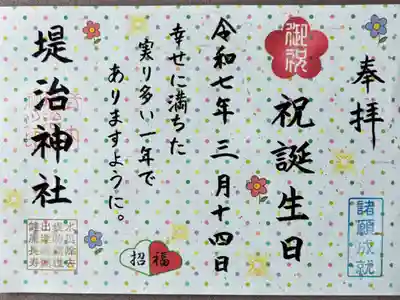 奉拝
御祝
祝誕生日
諸願成就
令和七年三月十四日
幸せに満ちた
実り多い一年で
ありますように。
招福
堤治神社